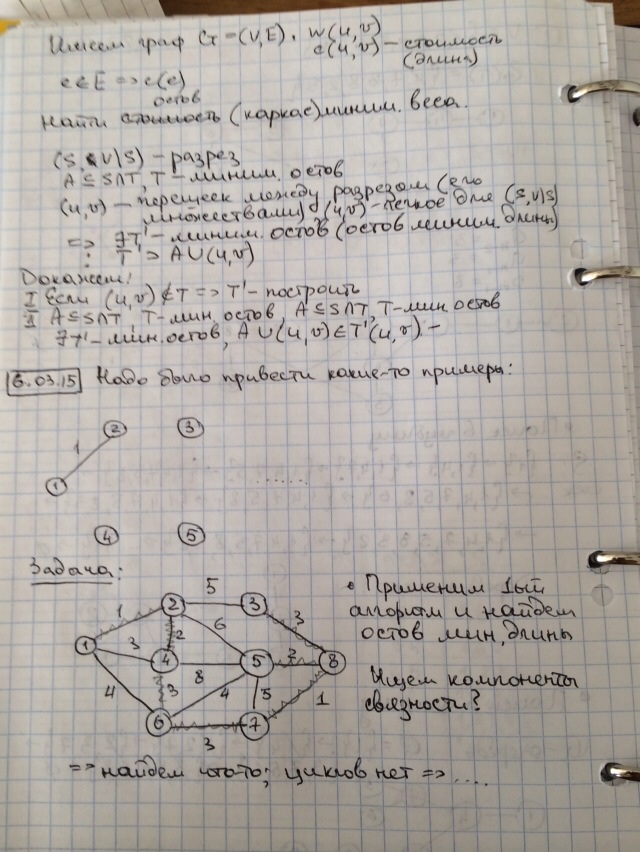 Имеем граф G=(V,E). w(u,v)
c(u,v) – стоимость
(длина)
e∈E => c(e)
остов
Найти стоимость (каркас) миним. веса.
(S, V\S) – разрез
A ⊆ S∩T, T – миним. остов
(u,v) – перешеек между разрезом (его
множествами) (u,v) – легкое для (S,V\S)
=> ∃T' – миним. остов (остов миним. длины)
: T' ⊃ A∪(u,v)
Докажем:
I Если (u,v)∉T => T' – построить
II A ⊆ S∩T, T – мин. остов, A ⊆ S∩T, T – мин. остов
∃T' – мин. остов, A∪(u,v) ∈ T'(u,v) –
6.03.15 Надо было привести какие-то примеры:
2 3
1
1 ........
4 5
Задача:
5
2 3
1 3
6
2
1 3 4 5 2 8
8
4 3 4 5 1
6 7
3
• Применим 1ый
алгоритм и найдем
остов мин. длины
Ищем компоненты
связности?
=> найдем что-то; циклов нет => ....